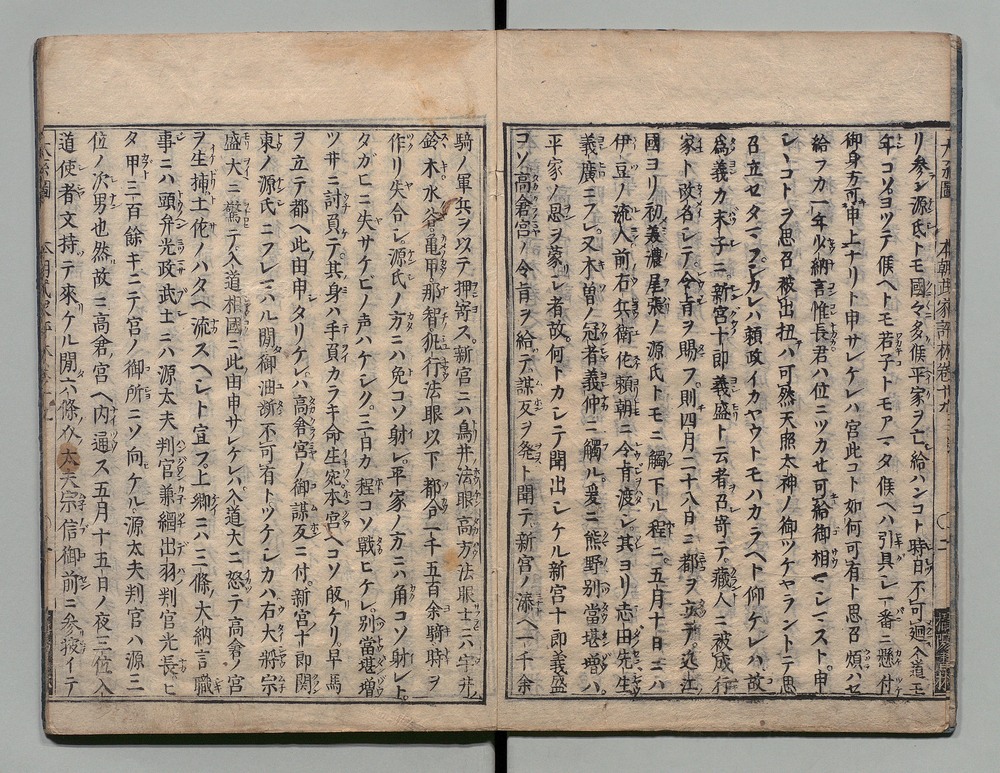 リ參ン源氏トモ國々多候平家ヲ亡給ハンコト時日不可廻入道モ
年コソヨツテ候ヘトモ若子トモアマタ候ヘハ引具シ一番ニ懸付
御身方可申上ナリト申サレケレハ宮此コト如何可有ト思召煩ハセ
給フカ一年少納言惟長君ハ位ニツカせ可給御相マシマスト申
シヽコトヲ思召被出扭ハ可然天照太神ノ御ツケヤラントテ思
召立セタマフシカレハ頼政イカヤウトモハカラヘト仰ケレハ故
為義カ末子ニ新宮十郎義盛ト云者召寄テ藏人ニ被成行
家ト改名シテ令旨ヲ賜フ則四月二十八日ニ都ヲ立テ近江
國ヨリ初義濃尾張ノ源氏トモニ觸下ル程ニ五月十日ニハ
伊豆ノ流人前右兵衛佐頼朝ニ令旨渡シ其ヨリ志田先生
義廣ニフレ又木曽ノ冠者義仲ニ觸ル爰ニ熊野別當堪増ハ
平家ノ恩ヲ蒙シ者故何トカシテ聞出シケル新宮十郎義盛
コソ高倉宮ノ令旨ヲ給テ謀反ヲ発ト聞テ新宮ノ湊ヘ一千余
騎ノ軍兵ヲ以テ押寄ス新宮ニハ鳥井法眼高方法眼士ニハ宇井
鈴木水谷亀甲那智執行法眼以下都合一千五百余騎時ヲ
作リ失合シ源氏ノ方ニハ免コソ射レ平家ノ方ニハ角コソ射レト
タガヒニ失サケビノ声ハケシク二日カ程コソ戰ヒケレ別當堪増
ツ井ニ討負テ其身ハ手負カラキ命生宛本宮ヘコソ敀ケリ早馬
ヲ立テ都ヘ此由申タリケレハ高倉宮ノ御謀反ニ付新宮十郎関
東ノ源氏ニフレシハル間御油断不可有トツケシカハ右大將宗
盛大ニ驚テ入道相國ニ此由申サレケレハ入道大ニ怒テ高倉ノ宮
ヲ生捕土佐ノハタヘ流スヘシト宣フ上卿ニハ三條大納言職
事ニハ頭弁光政武士ニハ源太夫判官兼綱出羽判官光長ヒ
タ甲三百餘キニテ宮ノ御所ニソ向ケル源太夫判官ハ源三
位ノ次男也然故ニ高倉宮ヘ内通ス五月十五日ノ夜三位入
道使者文持テ來リケル間六條